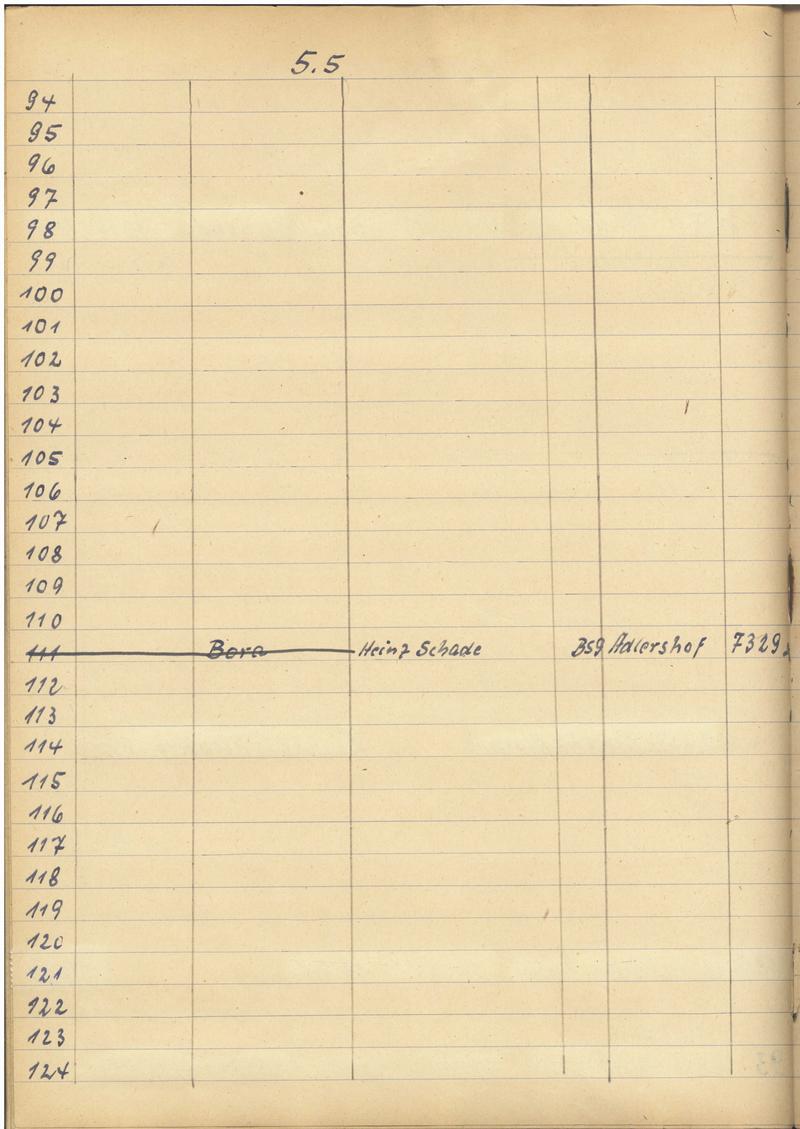 5.5
94
95
96
97
98
99
100
101
102
103
104
105
106
107
108
109
110
111 Bora Heinz Schade BSG Adlershof 7329
112
113
114
115
116
117
118
119
120
121
122
123
124